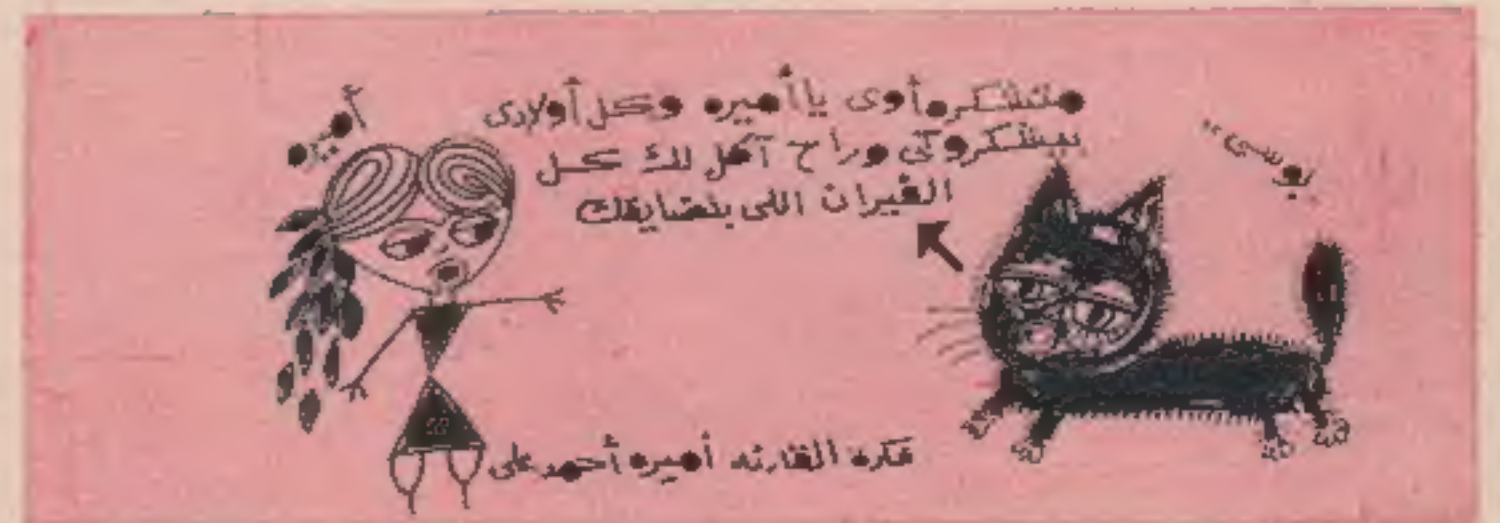 بوسى
متشكره أوى يا أميره وكل أولادى
بيشكروكى وراح آكل لك كل
الفيران اللى بتضايقك
أميره
فكره القارئه أميره أحمد على